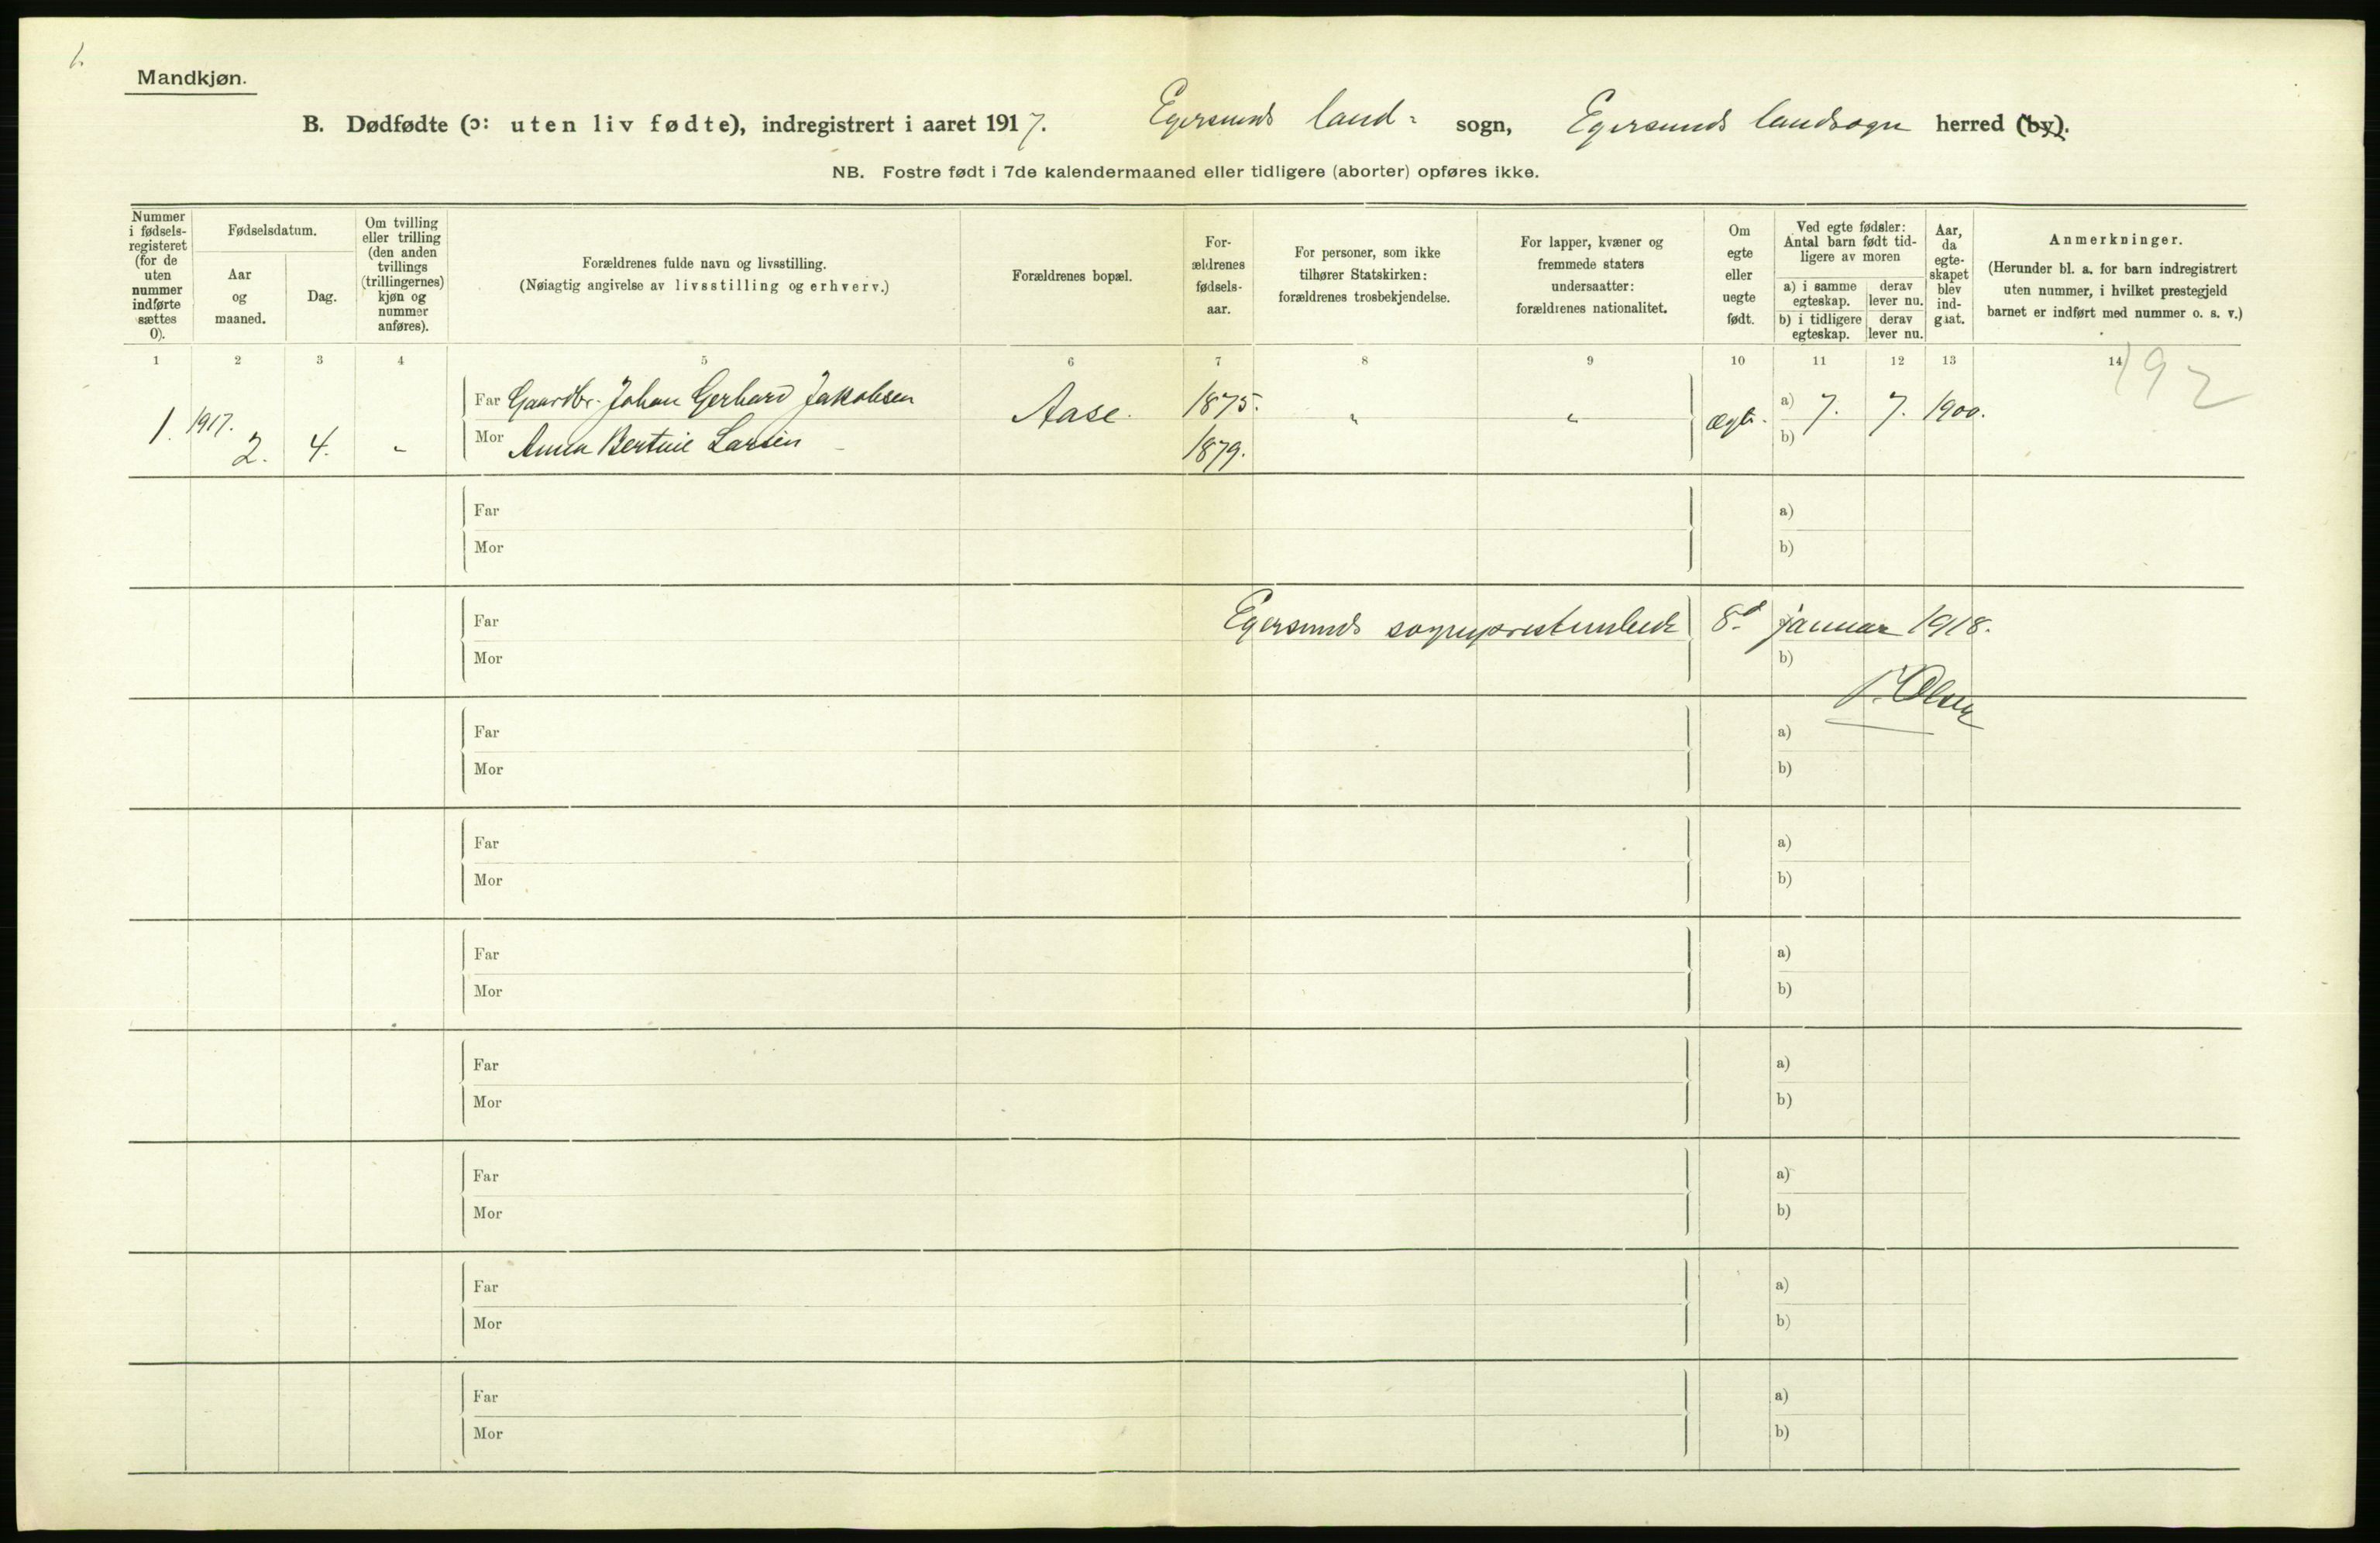 1.
Mandkjøn.
B. Dødfødte (ɔ: uten liv fødte), indregistrert i aaret 1917. Egersunds land= sogn, Egersunds landsogn herred (by).
NB. Fostre født i 7de kalendermaaned eller tidligere (aborter) opføres ikke.
Nummer i fødsels-registeret (for de uten nummer indførte sættes 0).
Fødselsdatum.
Aar og maaned.
Dag.
Om tvilling eller trilling (den anden tvillings (trillingernes) kjøn og nummer anføres).
Forældrenes fulde navn og livsstilling.
(Nøiagtig angivelse av livsstilling og erhverv.)
Forældrenes bopæl.
For-ældrenes fødsels-aar.
For personer, som ikke tilhører Statskirken: forældrenes trosbekjendelse.
For lapper, kvæner og fremmede staters undersaatter: forældrenes nationalitet.
Om egte eller uegte født.
Ved egte fødsler: Antal barn født tid-ligere av moren
a) i samme egteskap. derav lever nu.
b) i tidligere egteskap. derav lever nu.
Aar, da egte-skapet blev ind-gaat.
Anmerkninger.
(Herunder bl. a. for barn indregistrert uten nummer, i hvilket prestegjeld barnet er indført med nummer o. s. v.)
1 2 3 4 5 6 7 8 9 10 11 12 13 14
192
1. 1917. 2. 4. " Far Gaardbr. Johan Gerhard Jakobsen Aase. 1875. " " ægte. a) 7. 7. 1900.
Mor Anna Bertine Larsen 1879. b)
Far a)
Mor b)
Far Egersunds sogneprestembede 8d januar 1918.
Mor b)
Olsen
Far a)
Mor b)
Far a)
Mor b)
Far a)
Mor b)
Far a)
Mor b)
Far a)
Mor b)
Far a)
Mor b)
Far a)
Mor b)